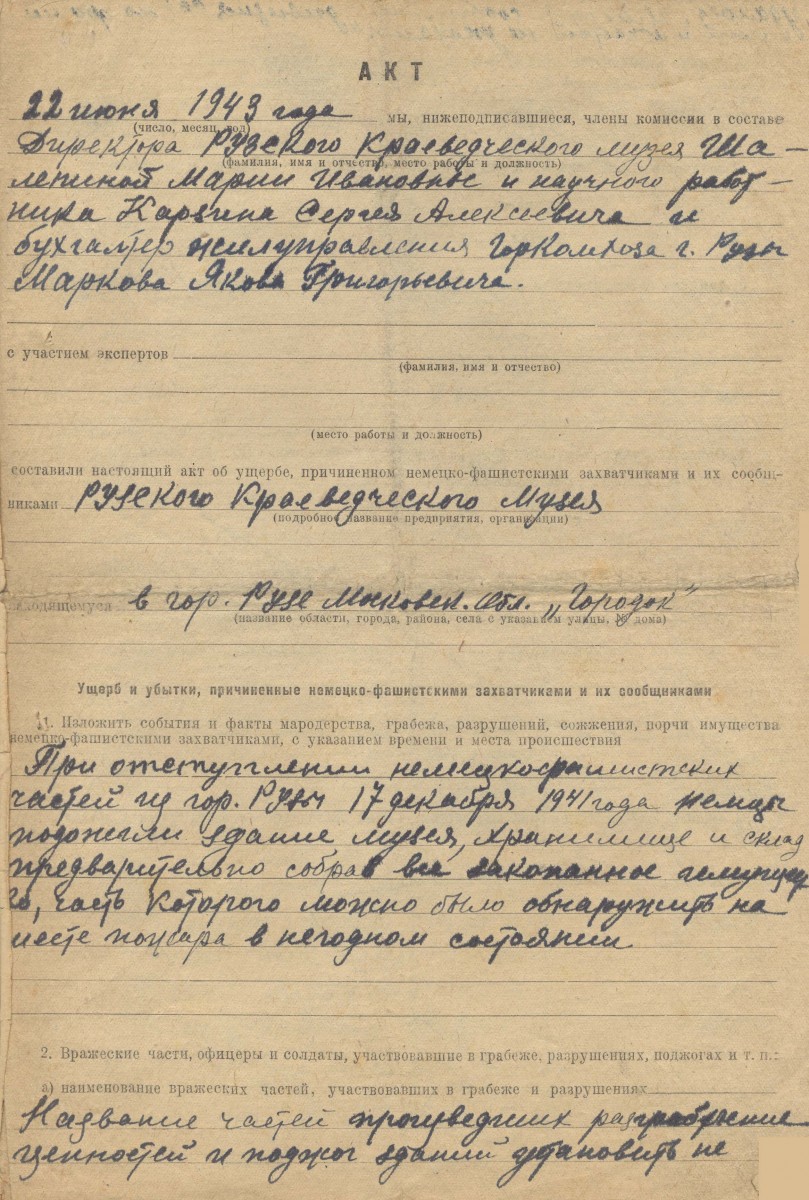 АКТ
22 июня 1943 года мы, нижеподписавшиеся, члены комиссии в составе
(число, месяц, год)
Директора Рузского Краеведческого музея Ша-
(фамилия, имя и отчество, место работы и должность)
лепиной Марии Ивановны и научного работ-
ника Сергея Алексеевича и
бухгалтер жилуправления Горкомхоза г. Рузы
Маркова Якова Григорьевича.
с участием экспертов
(фамилия, имя и отчество)
(место работы и должность)
составили настоящий акт об ущербе, причиненном немецко-фашистскими захватчиками и их сообщ-
никами Рузского Краеведческого Музея
(подробное название предприятия, организации)
находящемуся в гор. Рузе Московск. Обл. „Городок“
(название области, города, района, села с указанием улицы, № дома)
Ущерб и убытки, причиненные немецко-фашистскими захватчиками и их сообщниками
1. Изложить события и факты мародерства, грабежа, разрушений, сожжения, порчи имущества
немецко-фашистскими захватчиками, с указанием времени и места происшествия
При отступлении немецкофашистских
частей из гор. Рузы 17 декабря 1941 года немцы
подожгли здание музея, хранилище и склад
предварительно собрав все закопанное имуще
во, часть которого можно было обнаружить на
месте пожара в негодном состоянии
2. Вражеские части, офицеры и солдаты, участвовавшие в грабеже, разрушениях, поджогах и т. п.:
а) наименование вражеских частей, участвовавших в грабеже и разрушениях
Название частей произведших разграбление
ценностей и поджог зданий установить не